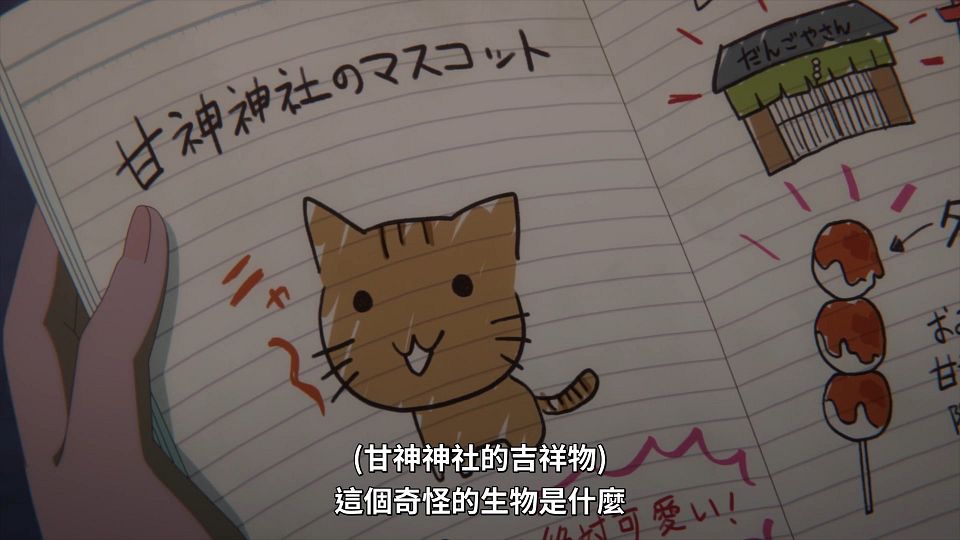 甘神神社のマスコット
だんごやさん
ニャ〜
(甘神神社的吉祥物)
這個奇怪的生物是什麼
絶対可愛い!